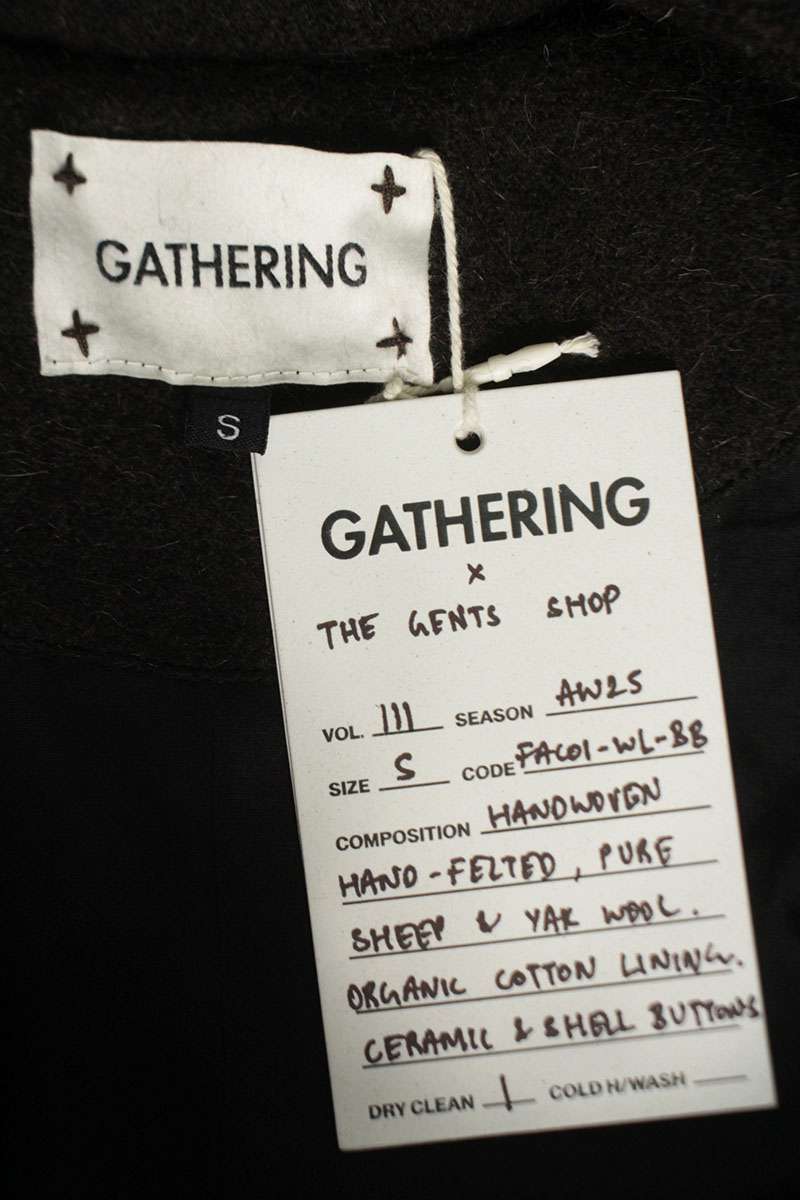 GATHERING
S
GATHERING
x
THE GENTS SHOP
VOL. III SEASON AW25
SIZE S CODE FAC01-WL-BB
COMPOSITION HANDWOVEN
HAND-FELTED, PURE
SHEEP & YAK WOOL.
ORGANIC COTTON LINING.
CERAMIC & SHELL BUTTONS
DRY CLEAN | COLD H/WASH